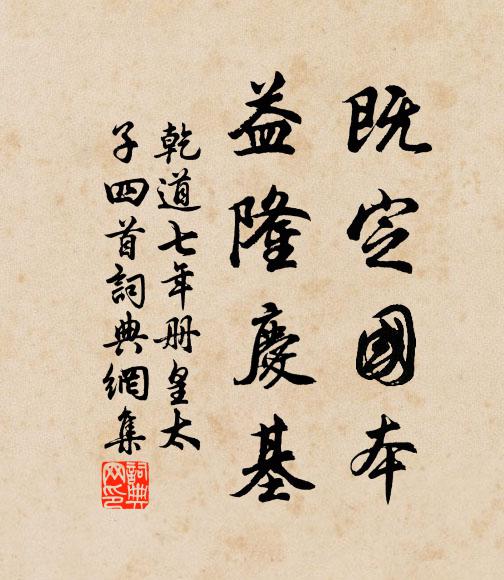 既定國本
益隆慶基
乾道七年册皇太
子四首詞典網集
詞典网印